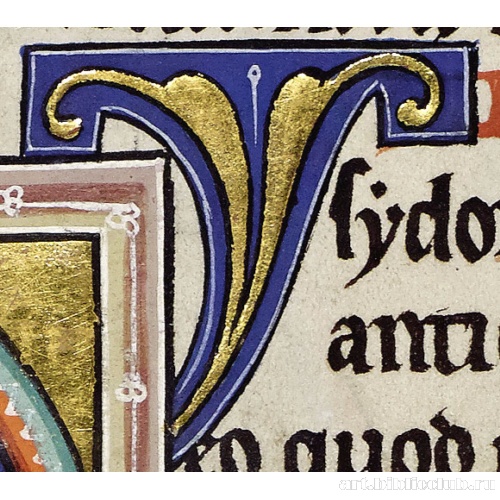 Yſẏdo
anti
to quod
art.biblioclub.ru